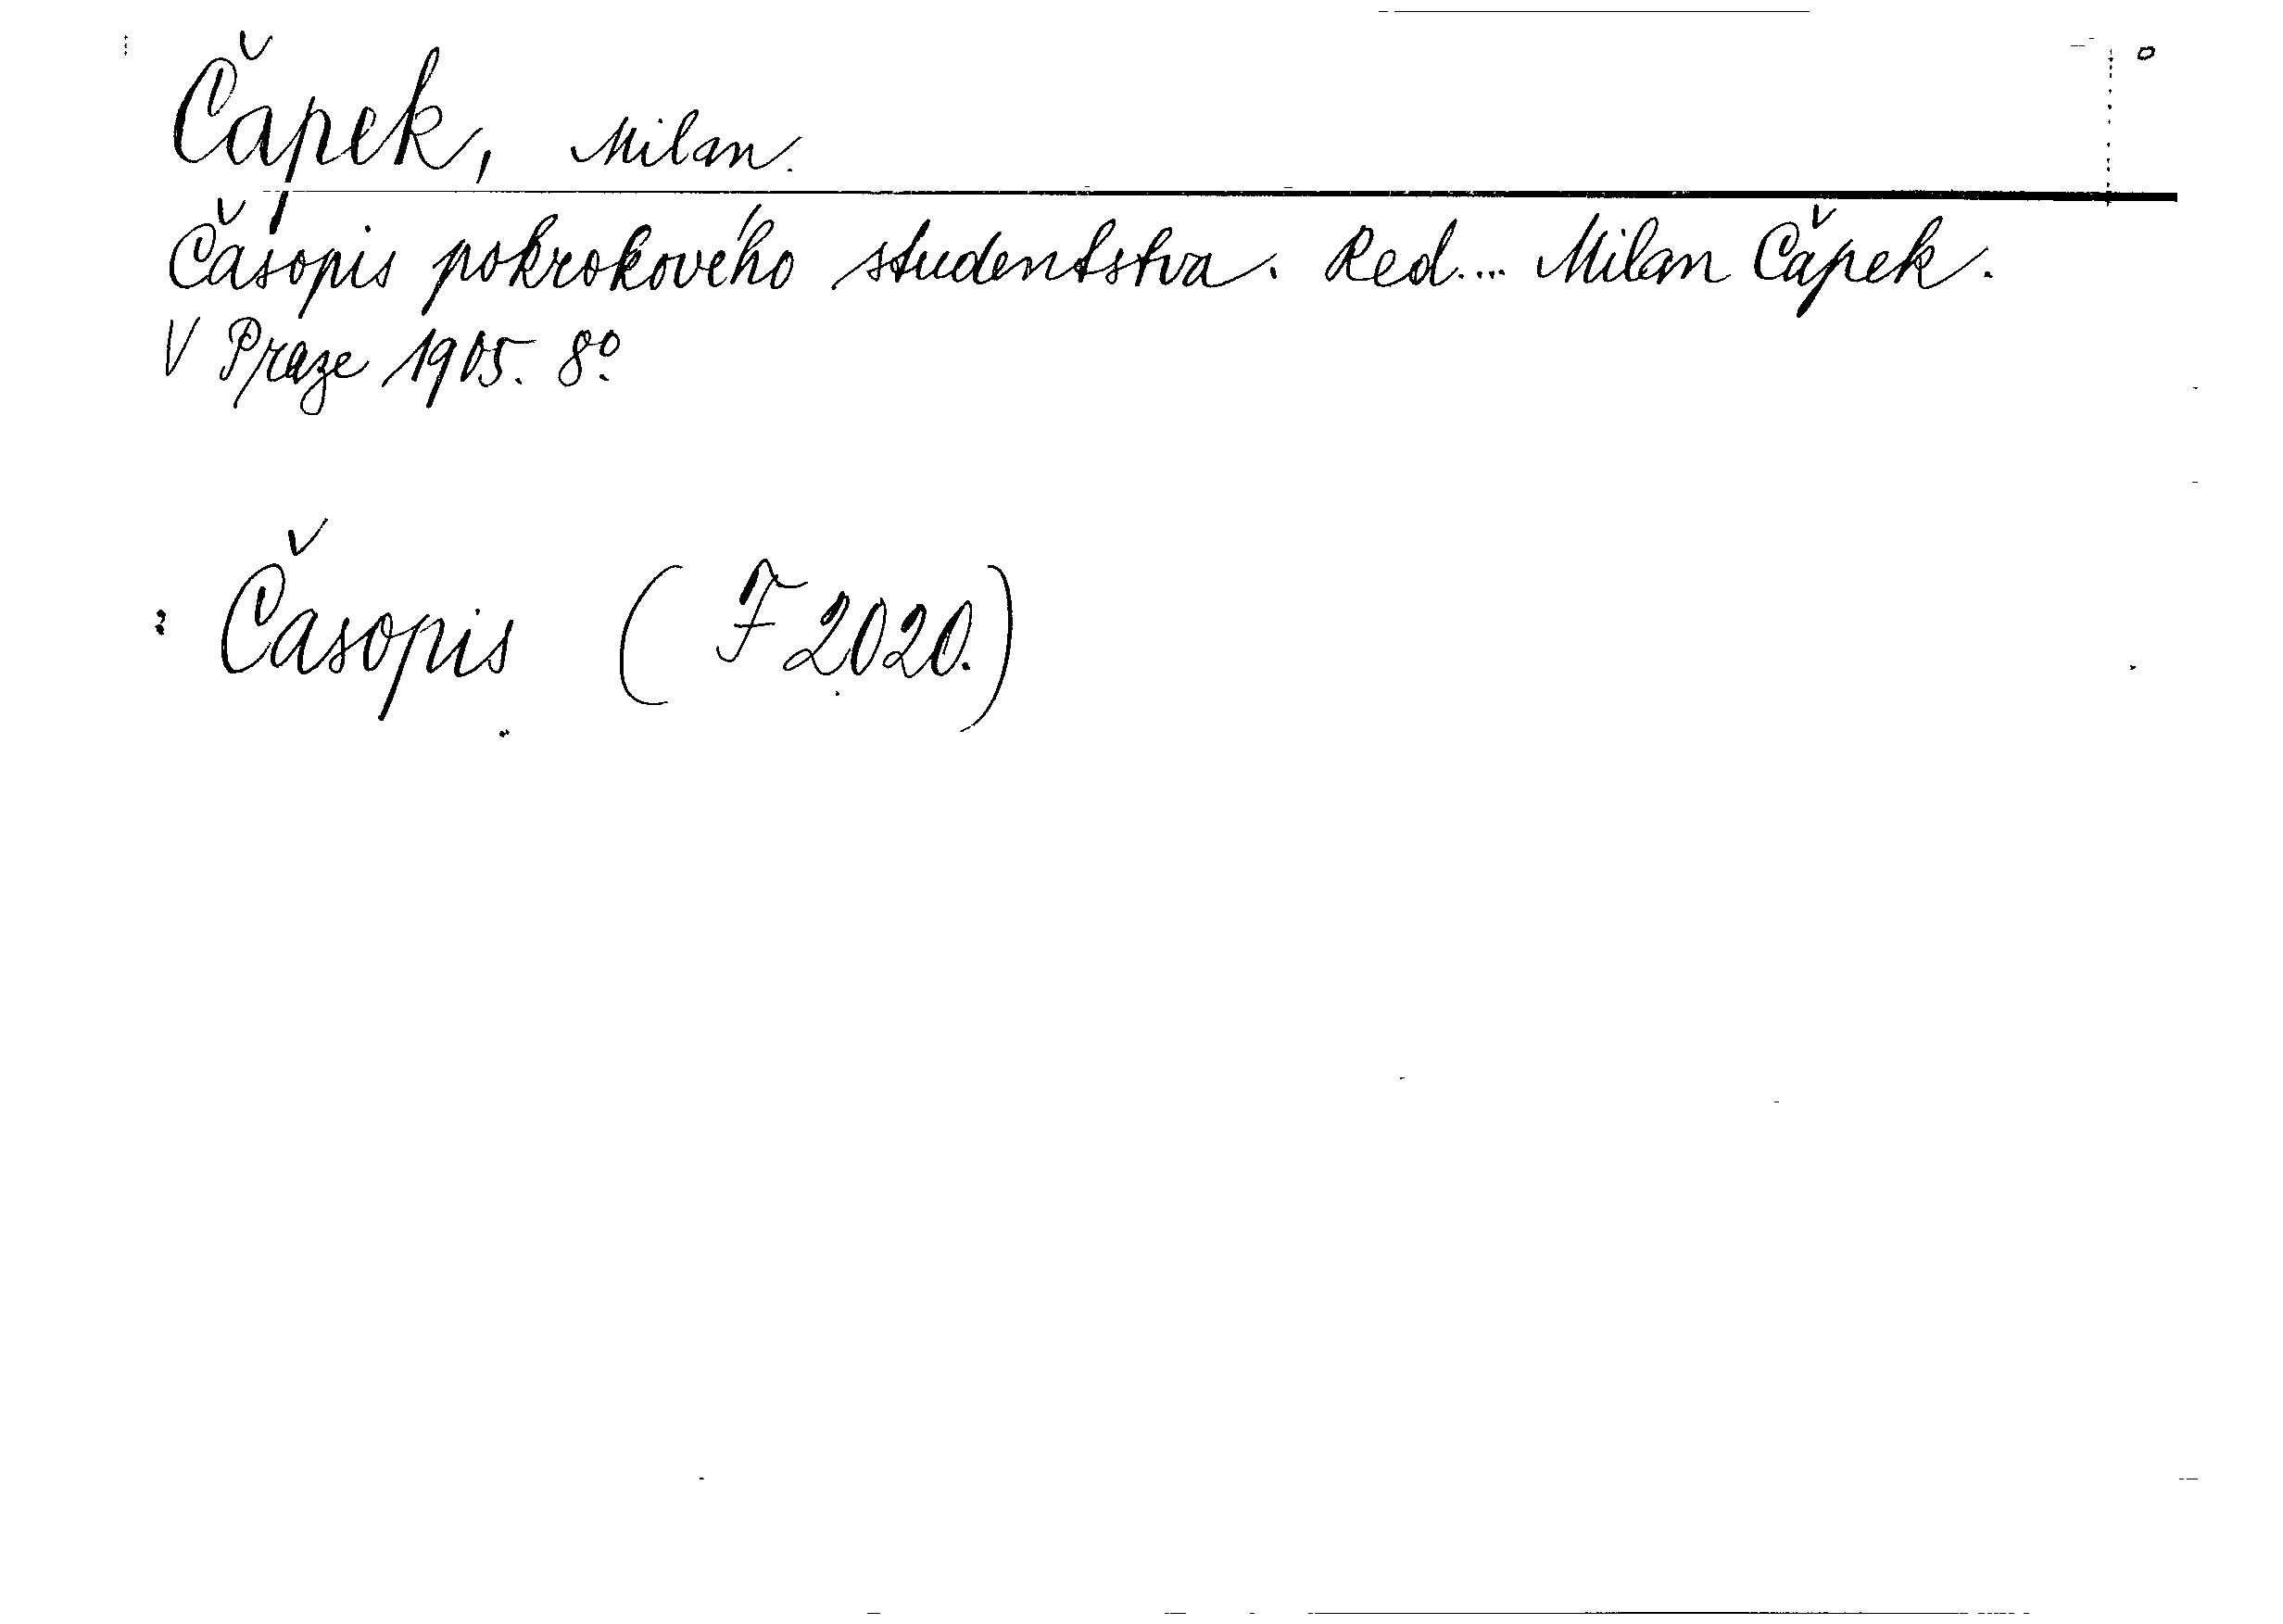 Čapek, Milan.
Časopis pokrokového studentstva. Red.... Milan Čapek.
V Praze 1905. 8º.
Časopis (F 2020.)